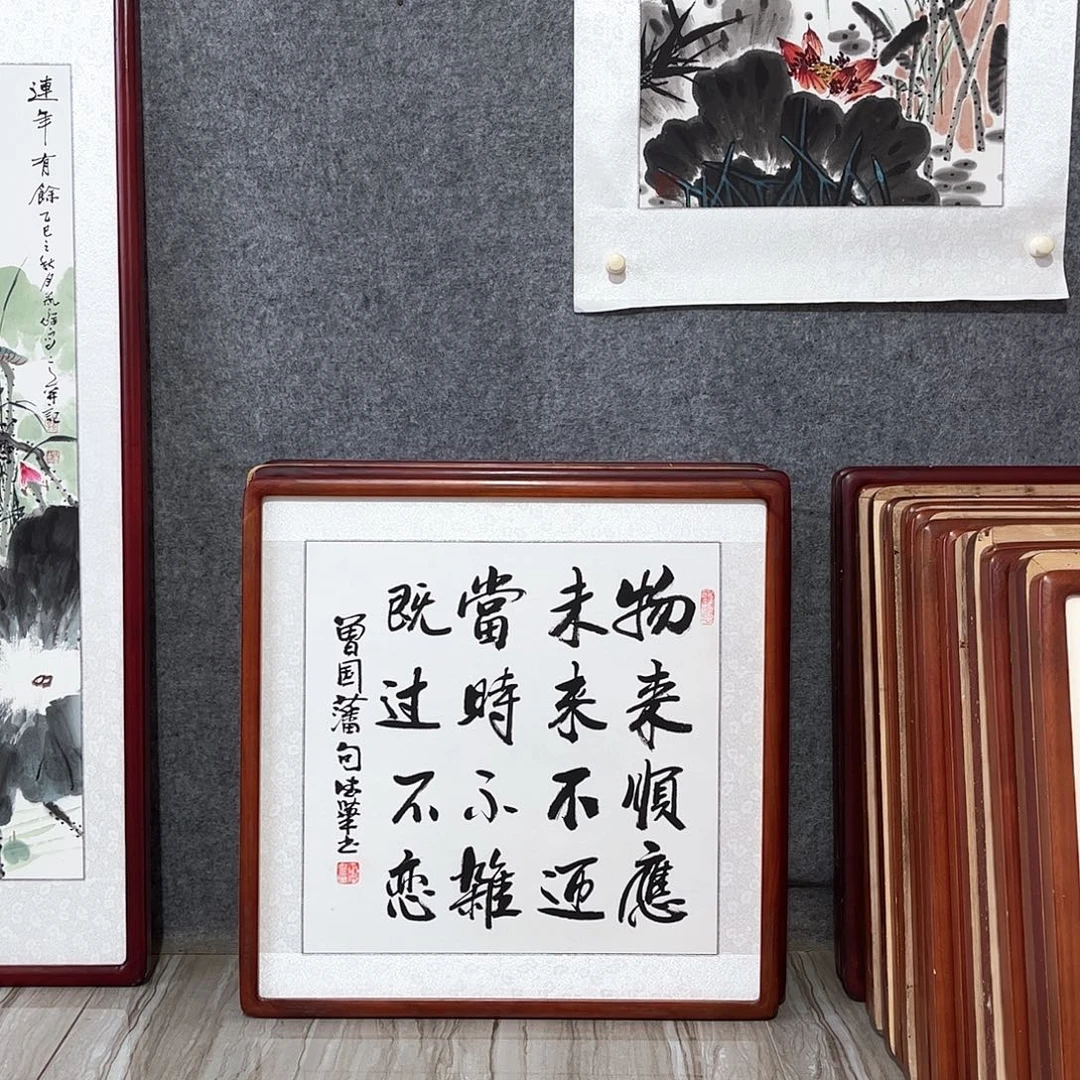 物来順應
未来不迎
當時不雜
既过不恋
曾国藩句
連年有餘
乙巳之秋月